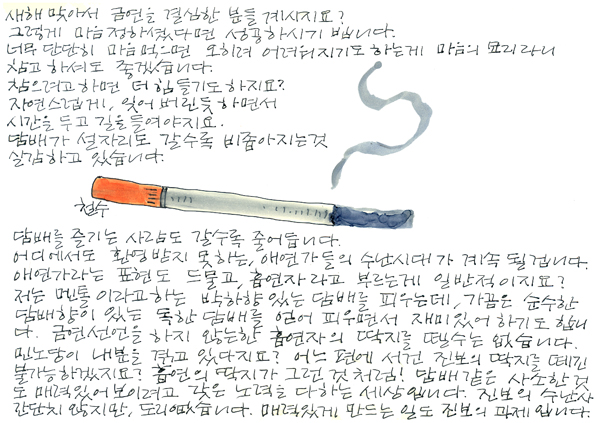 새해 맞아서 금연을 결심한 분들 계시지요?
그렇게 마음 정하셨다면 성공하시기 빕니다.
너무 단단히 마음먹으면 오히려 어려워지기도 하는게 마음의 묘리라니
참고 하셔도 좋겠습니다.
참으려고하면 더 힘들기도 하지요?
자연스럽게, 잊어 버린듯 하면서
시간을 두고 길을 들여야지요.
담배가 설자리도 갈수록 비좁아지는것
실감하고 있습니다.
철수
담배를 즐기는 사람도 갈수록 줄어듭니다.
어디에서도 환영받지 못하는, 애연가들의 수난시대가 계속 될겁니다.
애연가라는 표현도 드물고, 흡연자라고 부르는게 일반적이지요?
저는 멘톨이라고하는 박하향 있는 담배를 피우는데, 가끔은 순수한
담배향이 있는 독한 담배를 얻어 피우면서 재미있어 하기도 합니
다. 금연선언을 하지 않는한 흡연자의 딱지를 뗄수는 없습니다.
민노당이 내분을 겪고 있다지요? 어느 편에 서건 진보의 딱지를 떼긴
불가능하겠지요? 흡연의 딱지가 그런 것처럼! 담배같은 사소한것
도 매력있어보이려고 갖은 노력을 다하는 세상입니다. 진보의 수난사
간단치 않지만, 도리없습니다. 매력있게 만드는 일도 진보의 과제입니다.